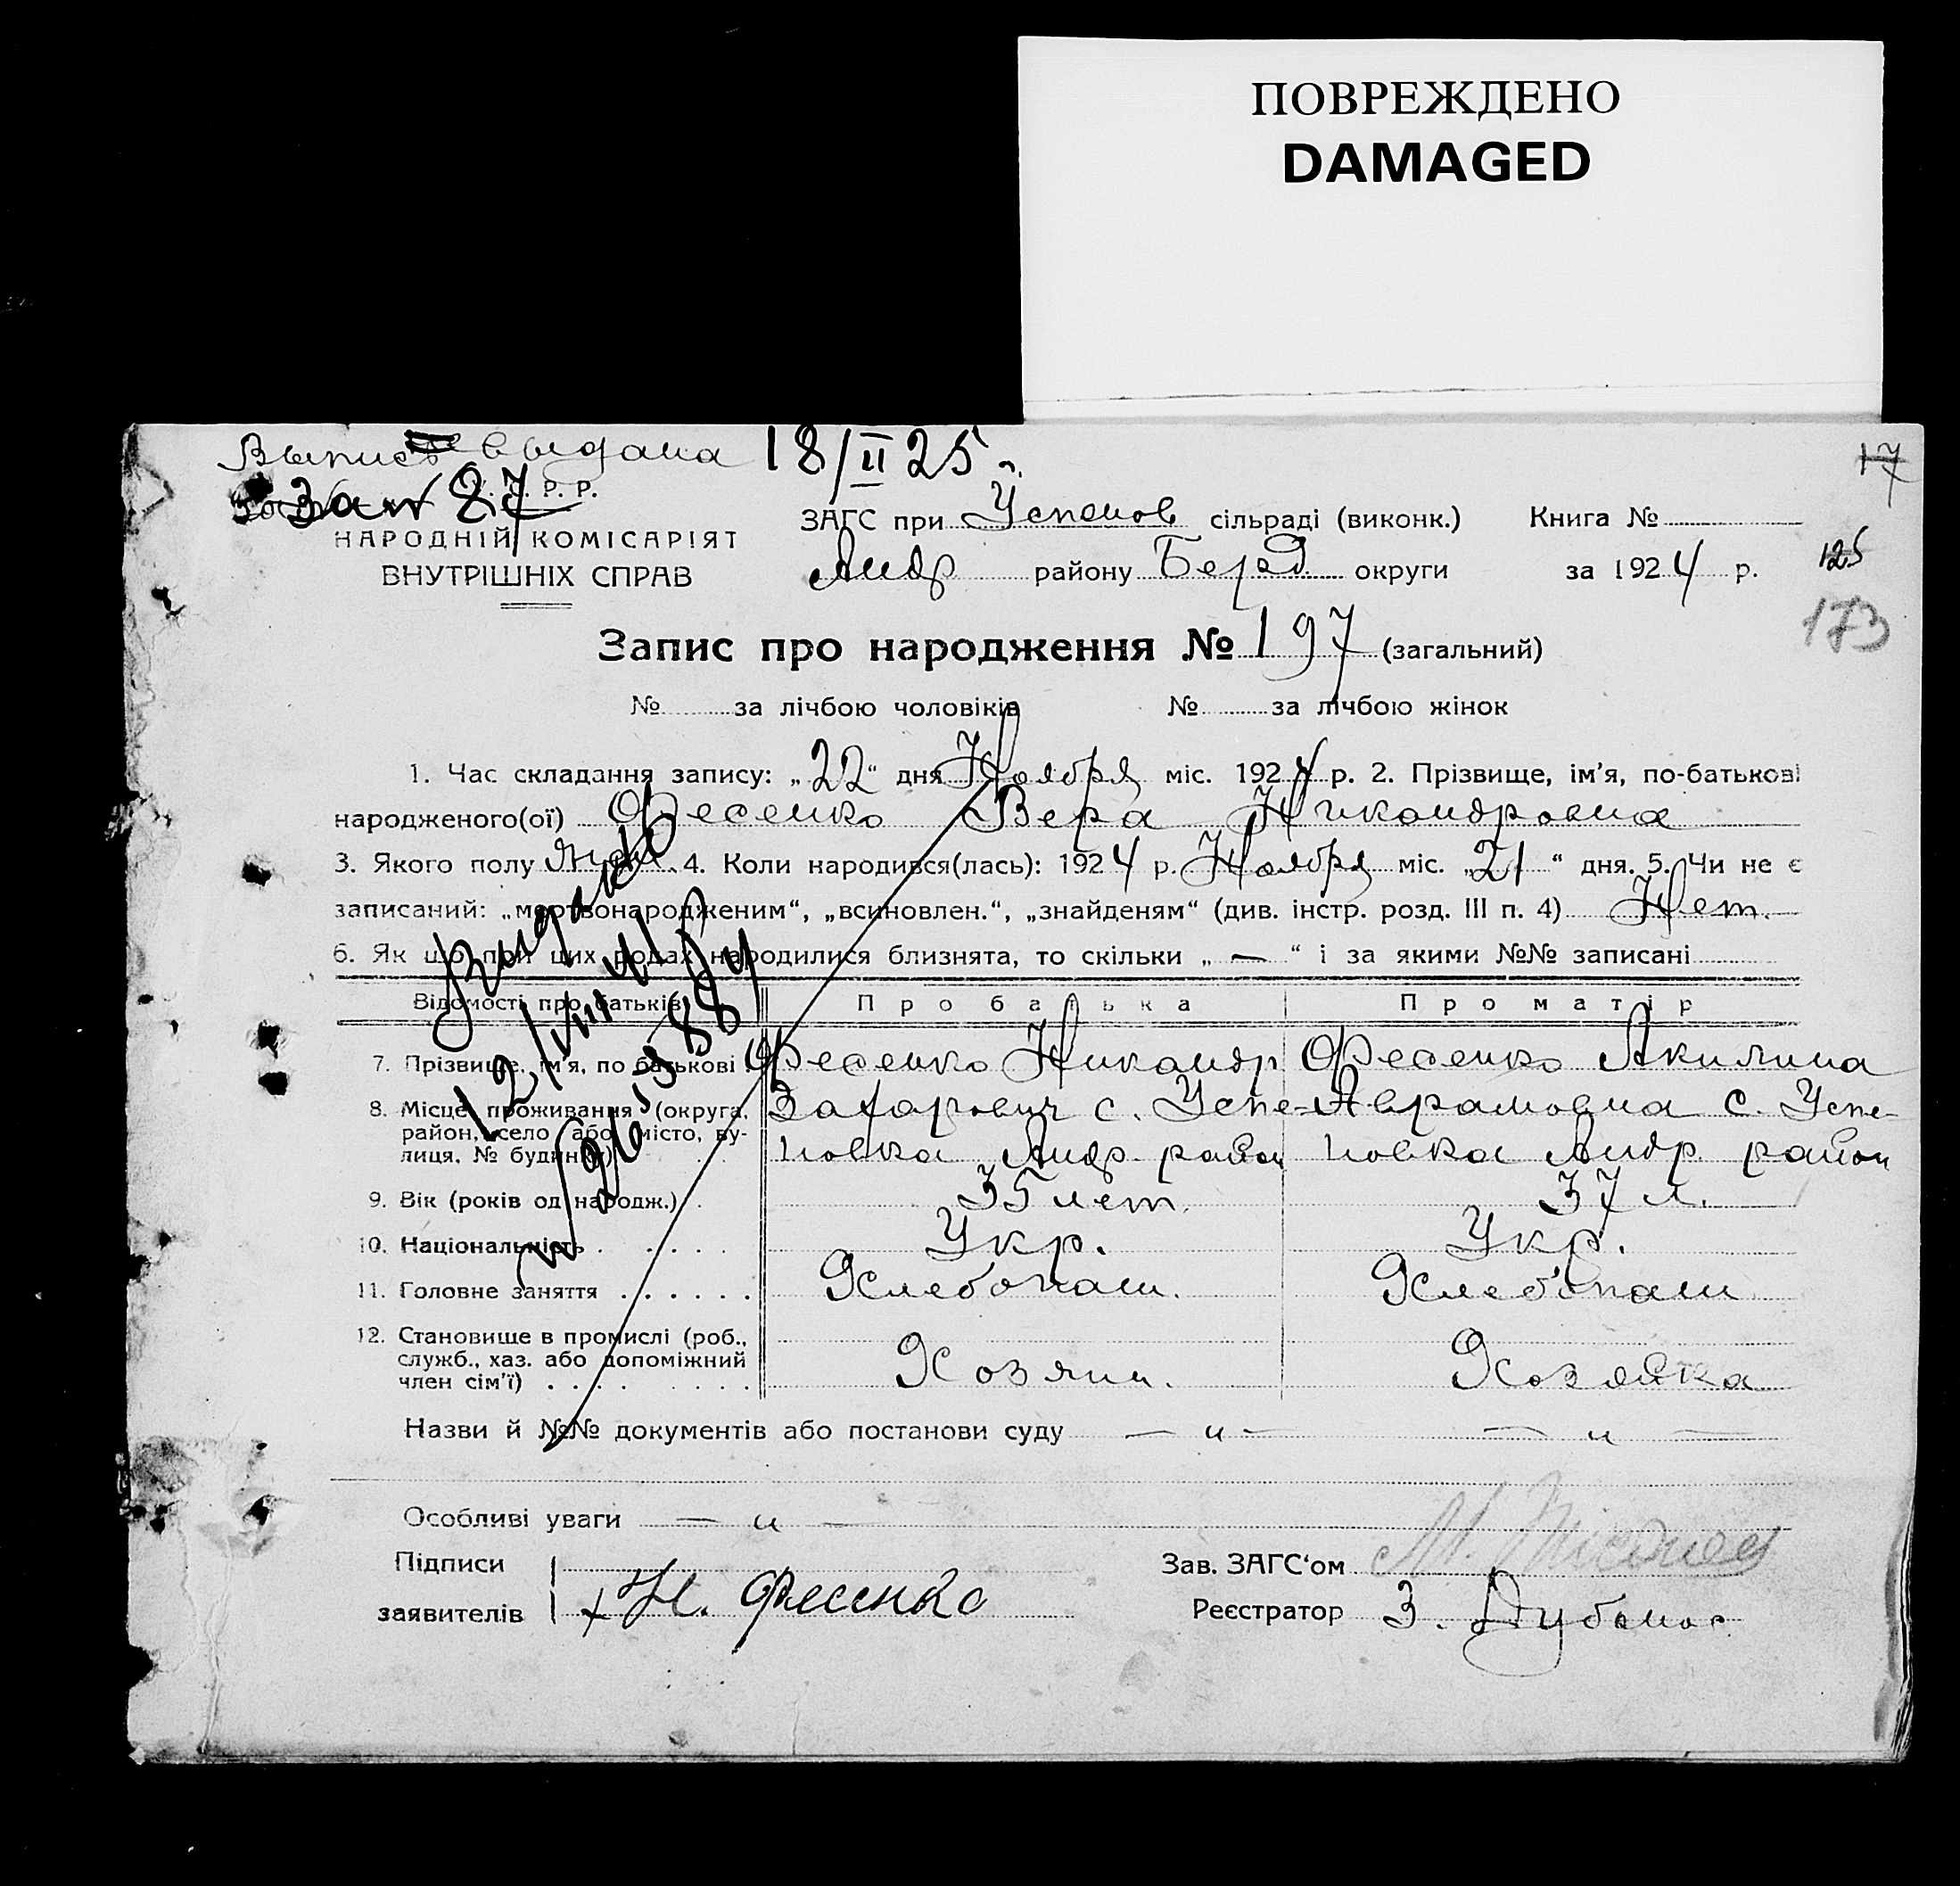 ПОВРЕЖДЕНО
DAMAGED
Выпись выдана 18/II 25 г.
За № 87
Р. Р.
17
НАРОДНІЙ КОМІСАРІЯТ
ВНУТРІШНІХ СПРАВ
ЗАГС при Успенов сільраді (виконк.) Книга №
Андр району Берд. округи за 1924 р.
125
173
Запис про народження № 197 (загальний)
№ за лічбою чоловіків № за лічбою жінок
1. Час складання запису: „22“ дня Ноября міс. 1924 р. 2. Прізвище, ім’я, по-батькові
народженого(ої) Фесенко Вера Никандровна
3. Якого полу 4. Коли народився(лась): 1924 р. Ноября міс. „21“ дня. 5. Чи не є
записаний: „мертвонародженим“, „всиновлен.“, „знайденям“ (див. інстр. розд. III п. 4) Нет.
6. Як що при цих родах народилися близнята, то скільки „ — “ і за якими №№ записані
Відомості про батьків Про батька Про матір
7. Прізвище, ім’я, по батькові . Фесенко Никандр Фесенко Акилина
8. Місце проживання (округа, Захарович с. Успе- Аврамовна с. Успе-
район, село або місто, ву- новка Андр. район новка Андр. район
лиця, № будинку)
9. Вік (років од народж.) . 35 лет. 37 л.
10. Національність . . . . . Укр. Укр.
11. Головне заняття . . . . . . Хлебопаш. Хлебопаш
12. Становище в промислі (роб.,
служб., хаз. або допоміжний Хозяин. Хозяйка
член сім’ї) . . . . . . . .
Назви й №№ документів або постанови суду — „ — — „ —
Особливі уваги — „ —
Підписи Зав. ЗАГС‘ом
заявителів + Н. Фесенко Реєстратор З.